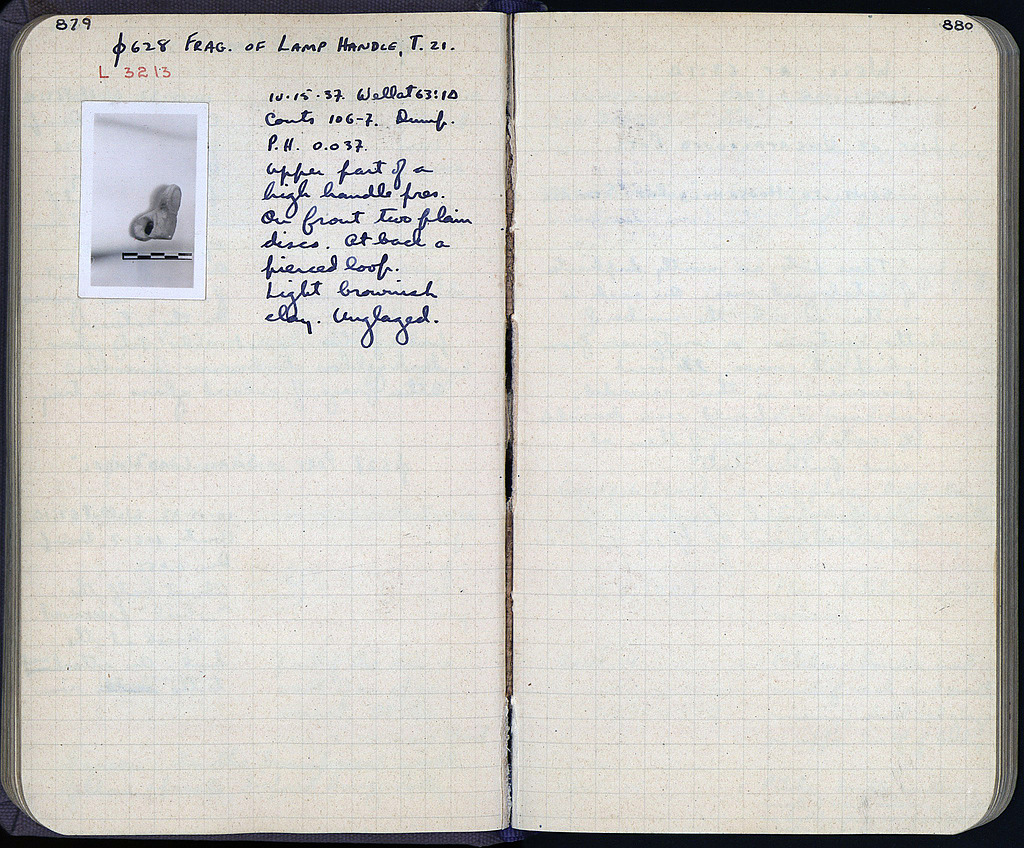 879
φ628 FRAG. OF LAMP HANDLE, T. 21.
L 3213
10-15-37. Well at 63:ΙΔ
Conts 106-7. Dump.
P.H. 0.037.
Upper part of a
high handle pres.
On front two plain
discs. At back a
pierced loop.
Light brownish
clay. Unglazed.
880